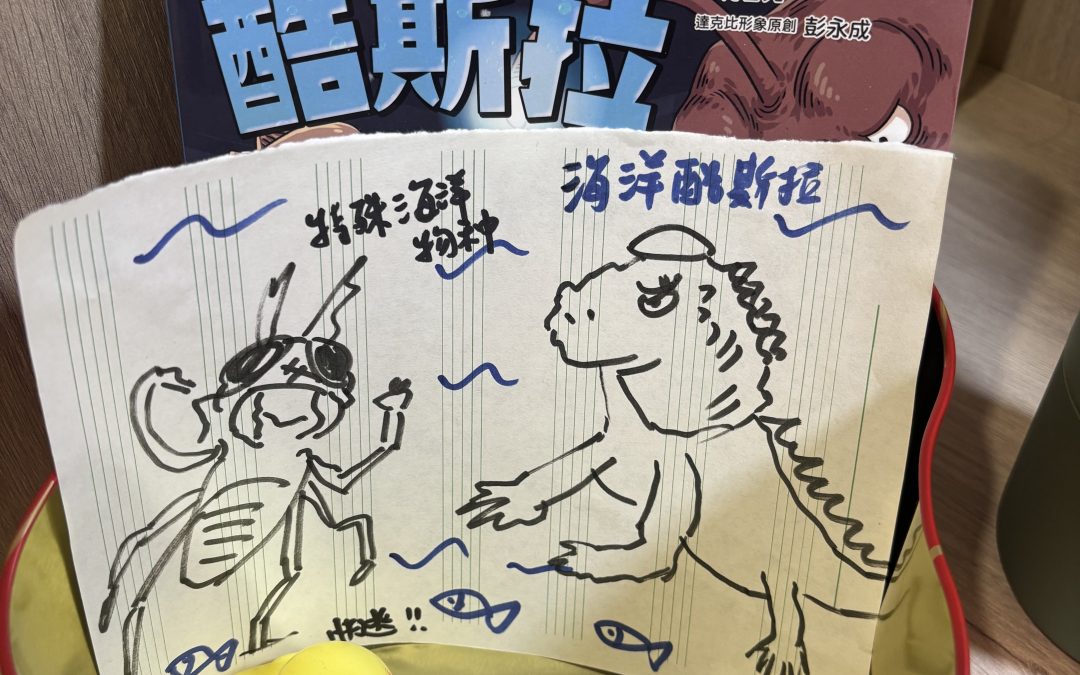 達克比形象原創 彭永成
酷斯拉
海洋酷斯拉
特殊海洋
物种
快逃!!